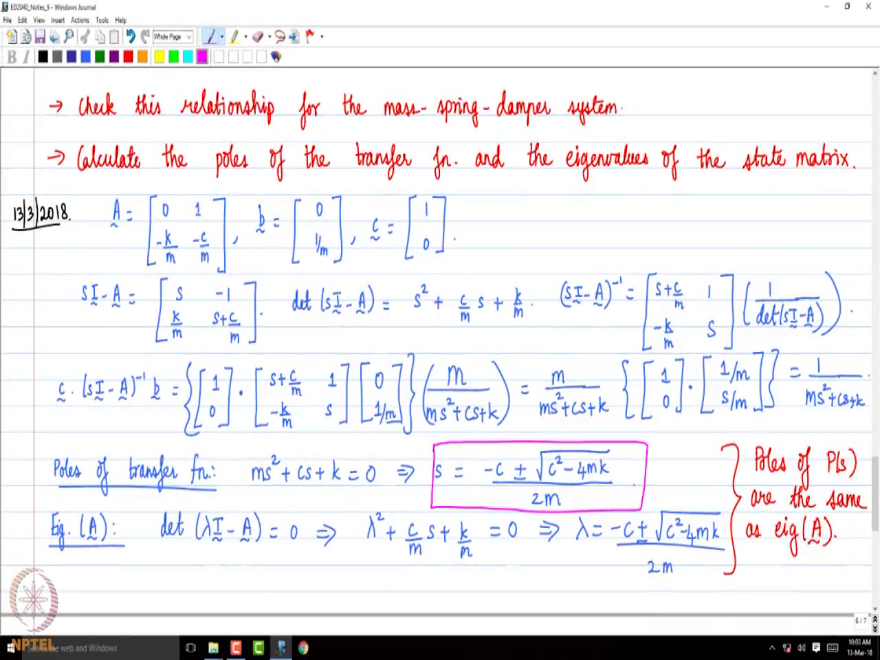 ED2040_Notes_9 - Windows Journal
File Edit View Insert Actions Tools Help
Whole Page
B I
→ Check this relationship for the mass-spring-damper system.
→ Calculate the poles of the transfer fn. and the eigenvalues of the state matrix.
13/3/2018. A = [0 1; -k/m -c/m], b = [0; 1/m], c = [1; 0].
sI-A = [s -1; k/m s+c/m]. det(sI-A) = s² + c/m s + k/m. (sI-A)⁻¹ = [s+c/m 1; -k/m s] (1/det(sI-A)).
c·(sI-A)⁻¹ b = {[1; 0]·[s+c/m 1; -k/m s][0; 1/m]}(m/(ms²+cs+k)) = m/(ms²+cs+k) {[1; 0]·[1/m; s/m]} = 1/(ms²+cs+k).
Poles of transfer fn.: ms²+cs+k = 0 ⇒ s = (-c ± √(c²-4mk))/2m.
Eig.(A): det(λI-A) = 0 ⇒ λ² + c/m s + k/m = 0 ⇒ λ = (-c ± √(c²-4mk))/2m
Poles of P(s)
are the same
as eig(A).
6/7
NPTEL
the web and Windows
10:03 AM
13-Mar-18